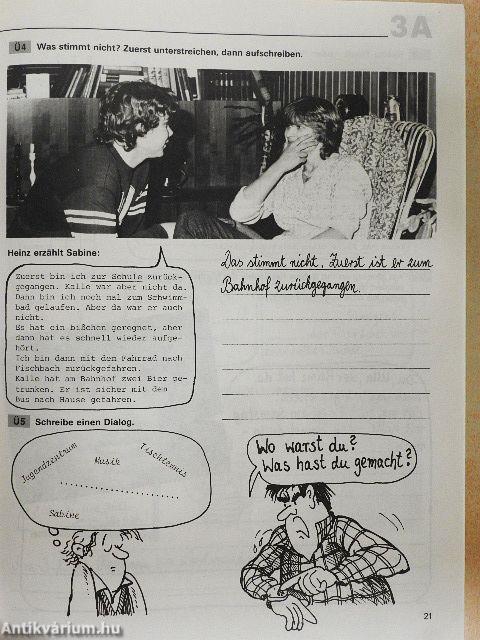 3A
Ü4 Was stimmt nicht? Zuerst unterstreichen, dann aufschreiben.
Heinz erzählt Sabine:
Zuerst bin ich zur Schule zurück-
gegangen. Kalle war aber nicht da.
Dann bin ich noch mal zum Schwimm-
bad gelaufen. Aber da war er auch
nicht.
Es hat ein bißchen geregnet, aber
dann hat es schnell wieder aufge-
hört.
Ich bin dann mit dem Fahrrad nach
Fischbach zurückgefahren.
Kalle hat am Bahnhof zwei Bier ge-
trunken. Er ist sicher mit dem
Bus nach Hause gefahren.
Das stimmt nicht. Zuerst ist er zum
Bahnhof zurückgegangen.
Ü5 Schreibe einen Dialog.
Jugendzentrum
Musik
Tischtennis
Sabine
Wo warst du?
Was hast du gemacht?
21
Antikvárium.hu